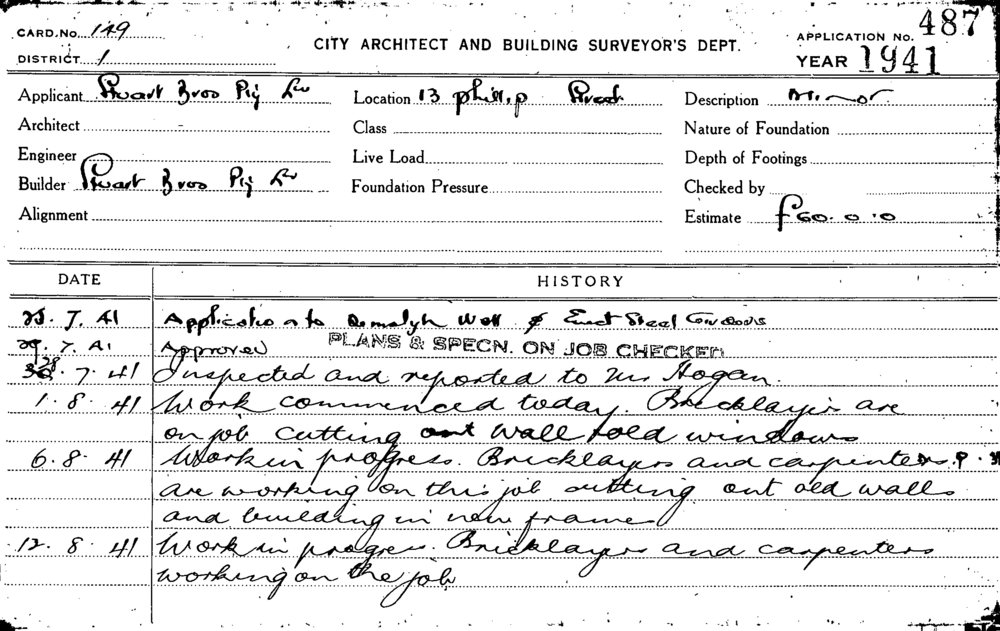 CARD. No. 149
DISTRICT 1
CITY ARCHITECT AND BUILDING SURVEYOR'S DEPT.
APPLICATION No. 487
YEAR 1941
Applicant Stuart Bros Pty Ltd
Location 13 Phillip Street
Description Minor
Architect
Class
Nature of Foundation
Engineer
Live Load
Depth of Footings
Builder Stuart Bros Pty Ltd
Foundation Pressure
Checked by
Alignment
Estimate £60.0.0
DATE HISTORY
25. 7. 41 Application to Demolish Wall & Erect Steel Girders
29. 7. 41 Approved PLANS & SPECN. ON JOB CHECKED
7. 41 Inspected and reported to Mr Hogan.
1. 8. 41 Work commenced today. Bricklayers are
on job cutting out wall & old windows
6. 8. 41 Work in progress. Bricklayers and carpenters
are working on this job cutting out old walls
and building in new frames
12. 8. 41 Work in progress. Bricklayers and carpenters
working on the job